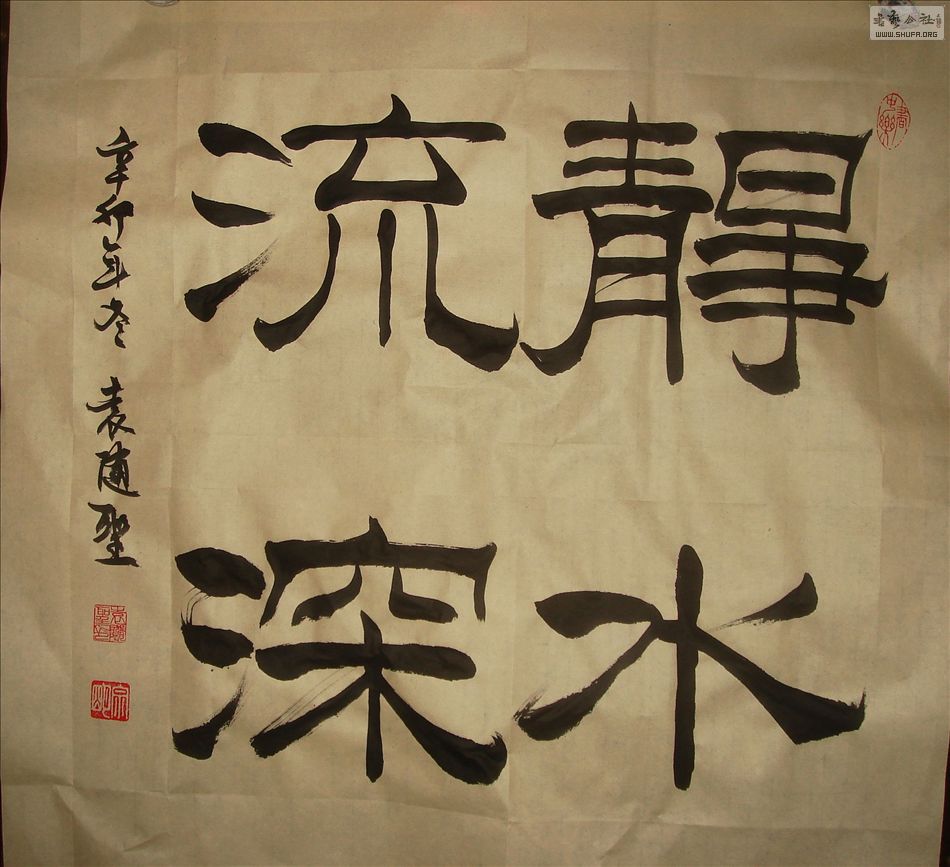 靜水
流深
辛卯年冬 袁随聖
書藝公社
WWW.SHUFA.ORG